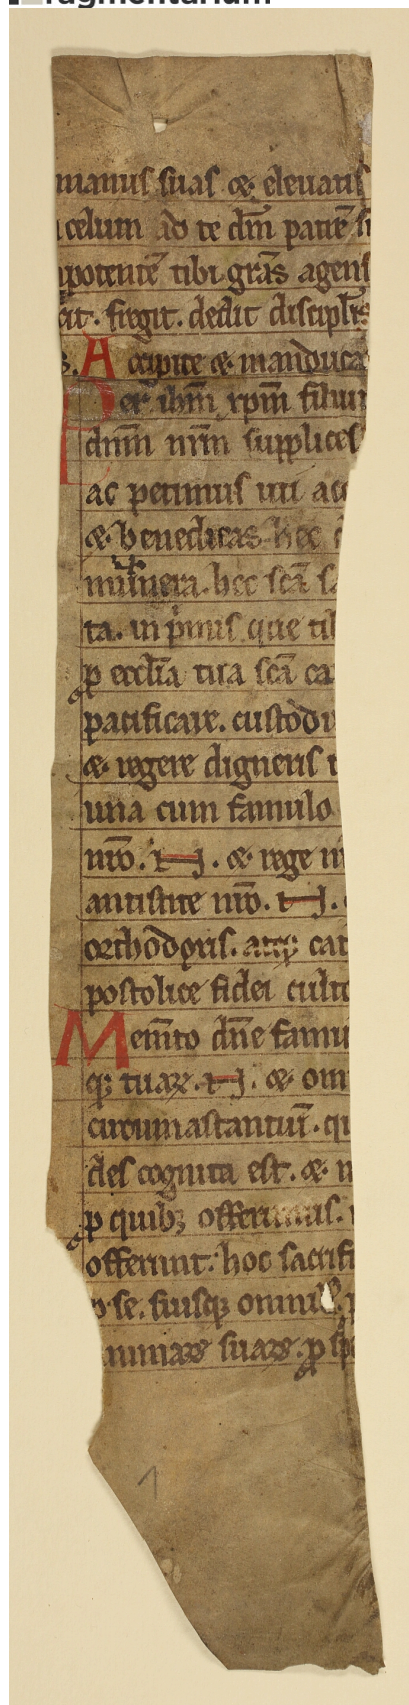 fragmentarium
manus suas & eleuatis
celum ad te dm̄ patrē
potentē tibi grās agens
fregit. dedit discipl̄is
Accipite & manduca
er ihm̄ xpm̄ filiu
dnm̄ nr̄m supplices
ac petimus uti acc
& benedicas hec
munera. hec sc̄a sa
ta. in pͥmis que tib
p eccl̄ia tua sc̄a ca
pacificare. custodi
& regere digneris
una cum famulo
nr̄o. N. & rege n
antistite nr̄o. N.
orthodoxis. atqꝫ cat
postolice fidei culto
Mem̄to dn̄e famu
qꝫ tuaꝝ. N. & om
circumastantiū. qu
des cognita est. & n
p quibꝫ offerimus.
offerunt. hoc sacrifi
se. suisqꝫ omnibꝫ.
animaꝝ suaꝝ. p spe
1